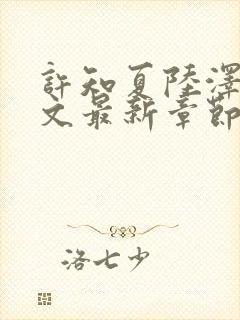 許知夏陸澤
文最新章節
洛七少